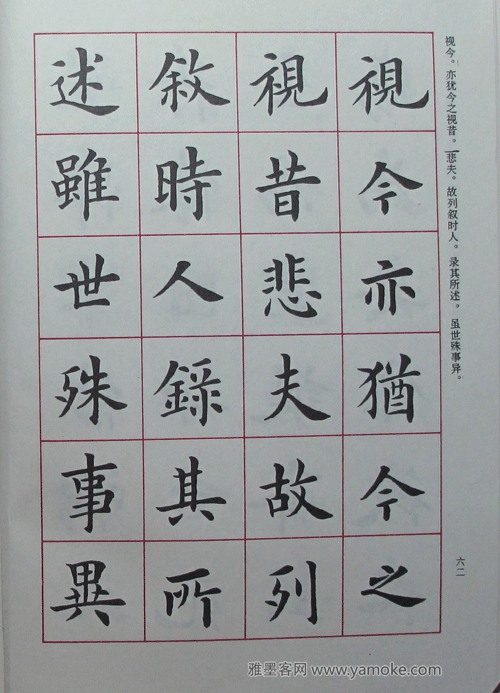 视今。亦犹今之视昔。悲夫。故列叙时人。录其所述。虽世殊事异。
視今亦猶今之
視昔悲夫故列
敘時人錄其所
述雖世殊事異
六二
雅墨客网 www.yamoke.com